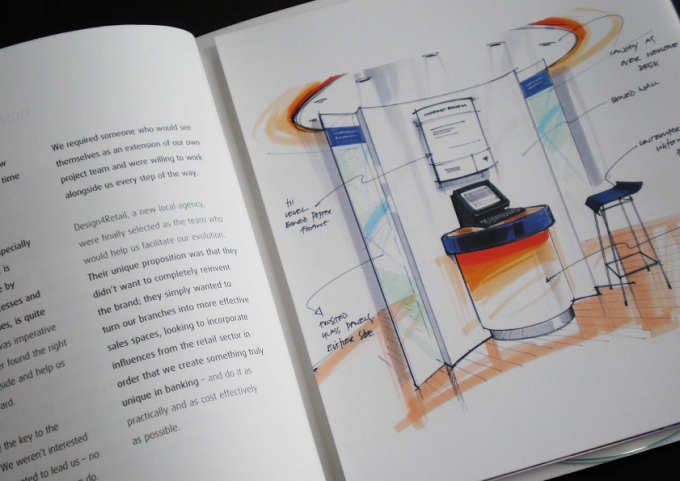 time
especially
is
by
esses and
es, is quite
was imperative
er found the right
side and help us
ard.
the key to the
We weren't interested
ted to lead us – no
do.
We required someone who would see
themselves as an extension of our own
project team and were willing to work
alongside us every step of the way.
Design4Retail, a new local agency,
were finally selected as the team who
would help us facilitate our evolution.
Their unique proposition was that they
didn't want to completely reinvent
the brand; they simply wanted to
turn our branches into more effective
sales spaces, looking to incorporate
influences from the retail sector in
order that we create something truly
unique in banking – and do it as
practically and as cost effectively
as possible.
CANOPY AS
OVER WELCOME
DESK
CURVED WALL
HI
LEVEL
FROSTED
GLASS PANELS
EITHER SIDE